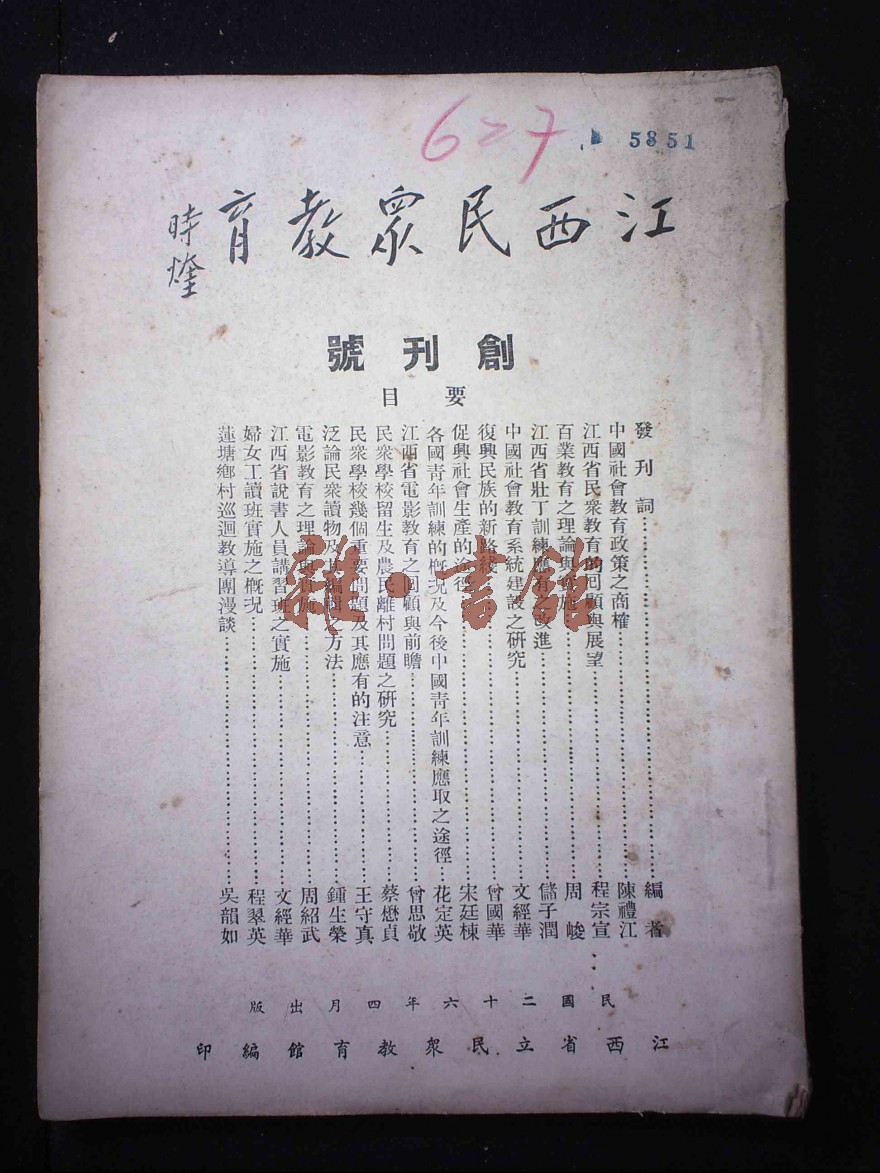 627
5851
江西民眾教育
時煃
創刊號
要目
發刊詞……編者
中國社會教育政策之商榷……陳禮江
江西省民眾教育的回顧與展望……程宗宣
百業教育之理論與實施……周峻
江西省壯丁訓練應有之改進……儲子潤
中國社會教育系統建設之研究……文經華
復興民族的新路綫……曾國華
促興社會生產的途徑……宋廷棟
各國青年訓練的概況及今後中國青年訓練應取之途徑…花定英
江西省電影教育之回顧與前瞻……曾思敬
民眾學校留生及農民離村問題之研究……蔡懋貞
民眾學校幾個重要問題及其應有的注意……王守真
泛論民眾讀物及其編輯之方法……鍾生榮
電影教育之理論與實施……周紹武
江西省說書人員講習班之實施……文經華
婦女工讀班實施之概況……程翠英
蓮塘鄉村巡迴教導團漫談……吳韻如
民國二十六年四月出版
江西省立民眾教育館編印
雜·書館